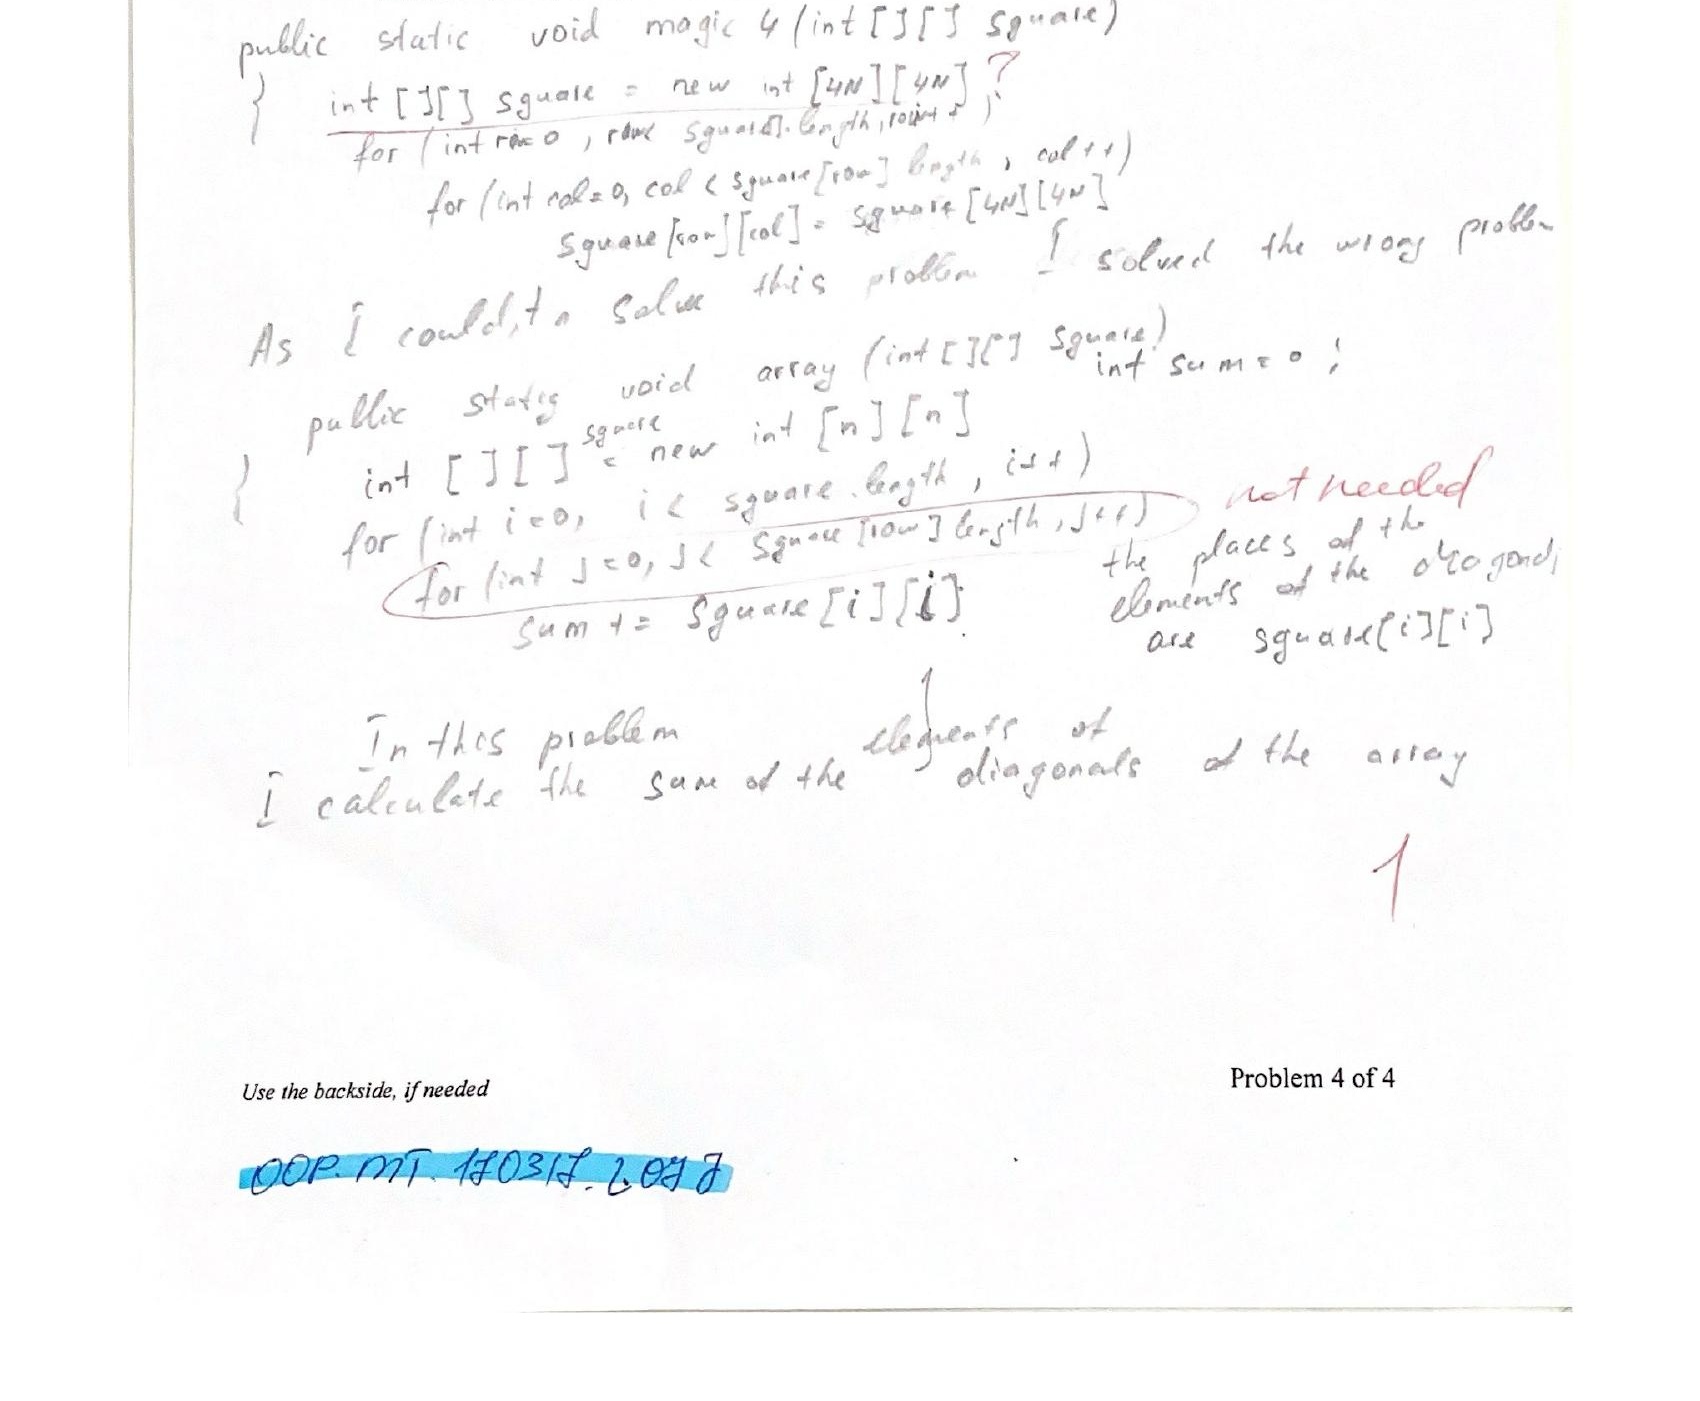 public static void magic 4 (int [][] square)
{ int [][] square = new int [4N][4N] ?
for (int row=0, row< square.length, row++)
for (int col=0, col < square[row] length, col++)
square[row][col] = square [4N][4N]
As I could,tn solve this problem I solved the wrong problem
public static void array (int [][] square)
int sum = 0;
{ int [][] square = new int [n][n]
for (int i=0, i < square.length, i++)
not needed
for (int j=0, j< square [row] length, j++)
sum += square[i][i]
the places of the
elements of the diagonal
are square[i][i]
In this problem
I calculate the sum of the elements of diagonals of the array
1
Use the backside, if needed
Problem 4 of 4
OOP. MT. 170317. 2.077